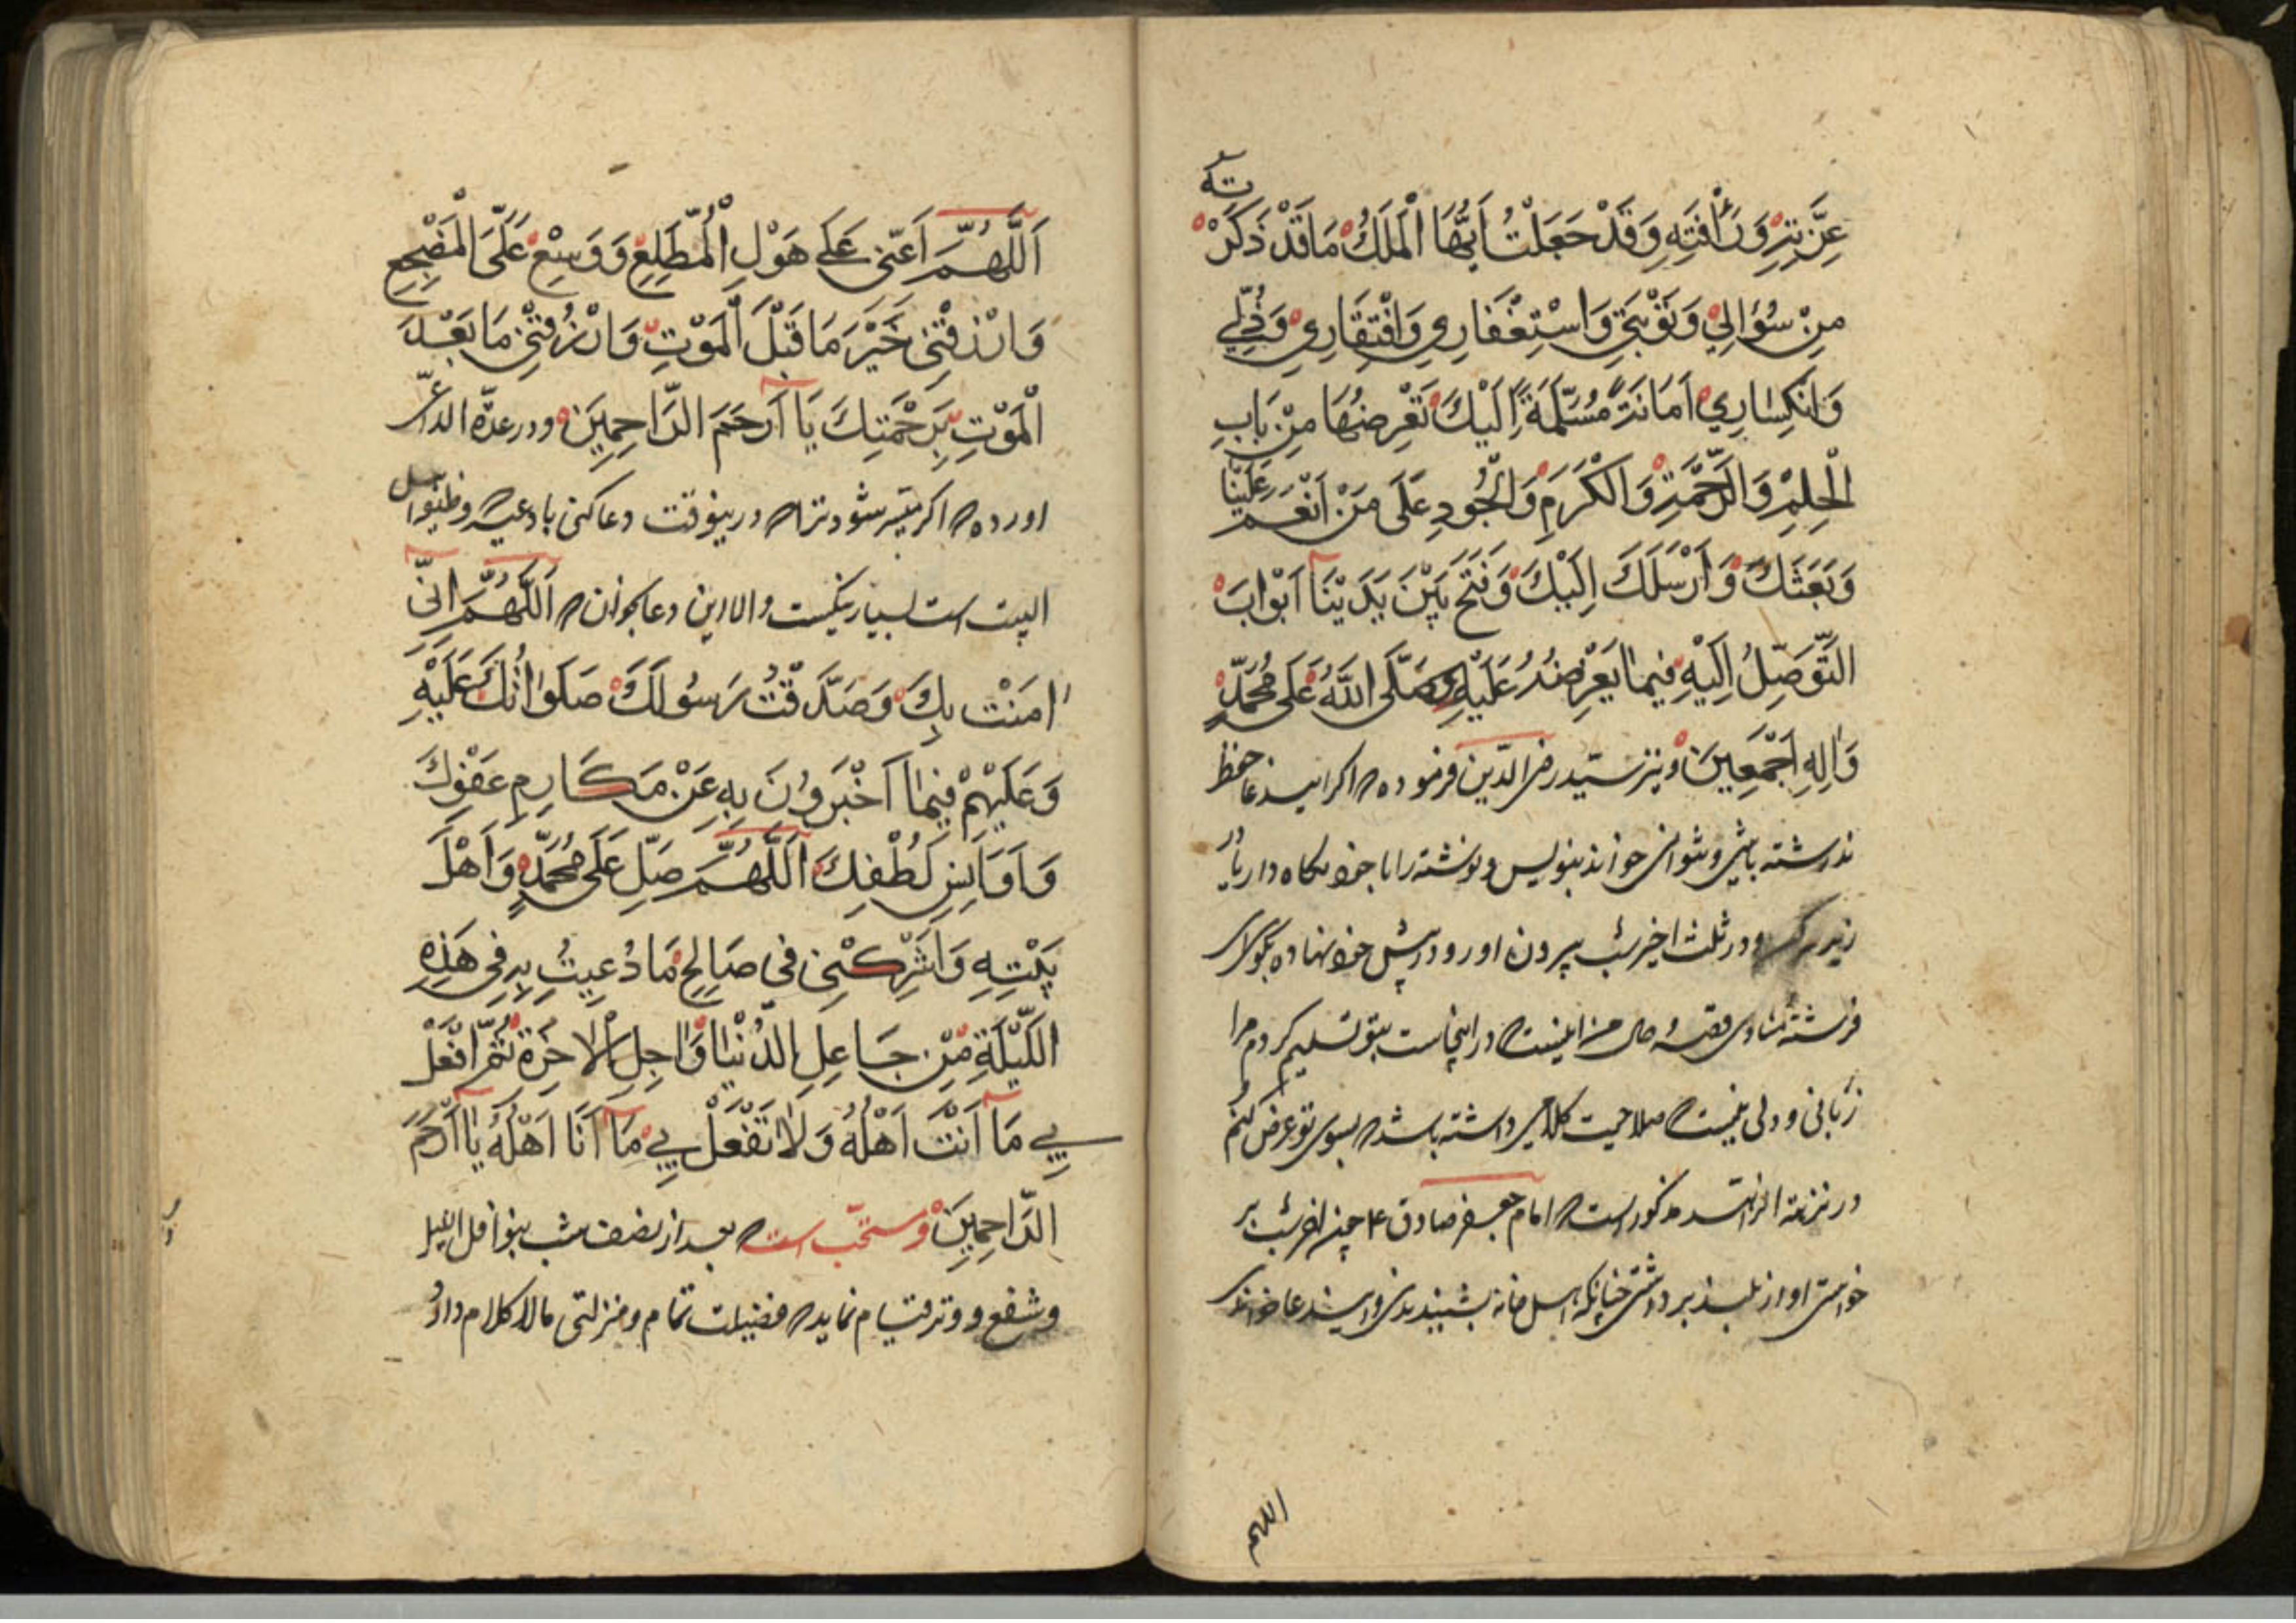 عِزَّتِهِ وَرَأْفَتِهِ وَقَدْ جَعَلْتُ اَيُّهَا الْمَلَكُ مَا قَدْ ذَكَرْتُهُ
مِنْ سُؤَالِي وَتَوْبَتِي وَاسْتِغْفَارِي وَافْتِقَارِي وَذُلِّي
وَانْكِسَارِي اَمَانَةً مُسَلَّمَةً اِلَيْكَ تَعْرِضُهَا مِنْ بَابِ
الْحِلْمِ وَالرَّحْمَةِ وَالْكَرَمِ وَالْجُودِ عَلَى مَنْ اَنْعَمَ عَلَيْنَا
وَبَعَثَكَ وَاَرْسَلَكَ اِلَيْكَ وَفَتَحَ بَيْنَ يَدَيْنَا اَبْوَابَ
التَّوَصُّلِ اِلَيْهِ فِيمَا يَعْرِضُهُ عَلَيْهِ وَصَلَّى اللّٰهُ عَلَى مُحَمَّدٍ
وَاٰلِهِ اَجْمَعِينَ ونیز سیّد رضی الدّین فرموده که اکر ایندعا حفظ
نداشته باشی ونتوانی خواند بنویس ونوشته را با خود نکاه دار یا در
زیر سر و در ثلث اخیر شب بیرون اور و در پیش خود نهاده بکوی ای
فرشته منادی قصه حال من اینست که در اینجاست بتو تسلیم کردم مرا
زبانی و دلی نیست که صلاحیت کلامی داشته باشد که بسوی تو عرض کنم
در نزهة الزاهد مذکور است که امام جعفر صادق ع چون اخر شب بر
خواستی اواز بلند برداشتی چنانکه اهل خانه بشنیدندی و ایندعا خواندی
اللهم
اَللّٰهُمَّ اَعِنِّي عَلَى هَوْلِ الْمُطَّلَعِ وَوَسِّعْ عَلَيَّ الْمَضْجَعَ
وَارْزُقْنِي خَيْرَ مَا قَبْلَ الْمَوْتِ وَارْزُقْنِي مَا بَعْدَ
الْمَوْتِ بِرَحْمَتِكَ يَا اَرْحَمَ الرَّاحِمِينَ ودر عدّة الداعی
اورده که اکر میسر شود ترا که درینوقت دعا کنی بادعیه که وظیفه
البیت است بسیار نیکست والا این دعا بخوان که اَللّٰهُمَّ اِنِّي
اٰمَنْتُ بِكَ وَصَدَّقْتُ رَسُولَكَ صَلَوَاتُكَ عَلَيْهِ
وَعَلَيْهِمْ فِيمَا اَخْبَرُونَ بِهِ عَنْ مَكَارِمِ عَفْوِكَ
وَاَوَانِسِ لُطْفِكَ اَللّٰهُمَّ صَلِّ عَلَى مُحَمَّدٍ وَاَهْلِ
بَيْتِهِ وَاَشْرِكْنِي فِي صَالِحِ مَا دُعِيتَ بِهِ فِي هَذِهِ
اللَّيْلَةِ مِنْ عَاجِلِ الدُّنْيَا وَاٰجِلِ الْاٰخِرَةِ ثُمَّ افْعَلْ
بِي مَا اَنْتَ اَهْلُهُ وَلَا تَفْعَلْ بِي مَا اَنَا اَهْلُهُ يَا اَرْحَمَ
الرَّاحِمِينَ ومستحبّ است که بعد از نصف شب بنوافل اللیل
وشفع و وتر قیام نماید که فضیلت تمام ومنزلتی مالا کلام دارد